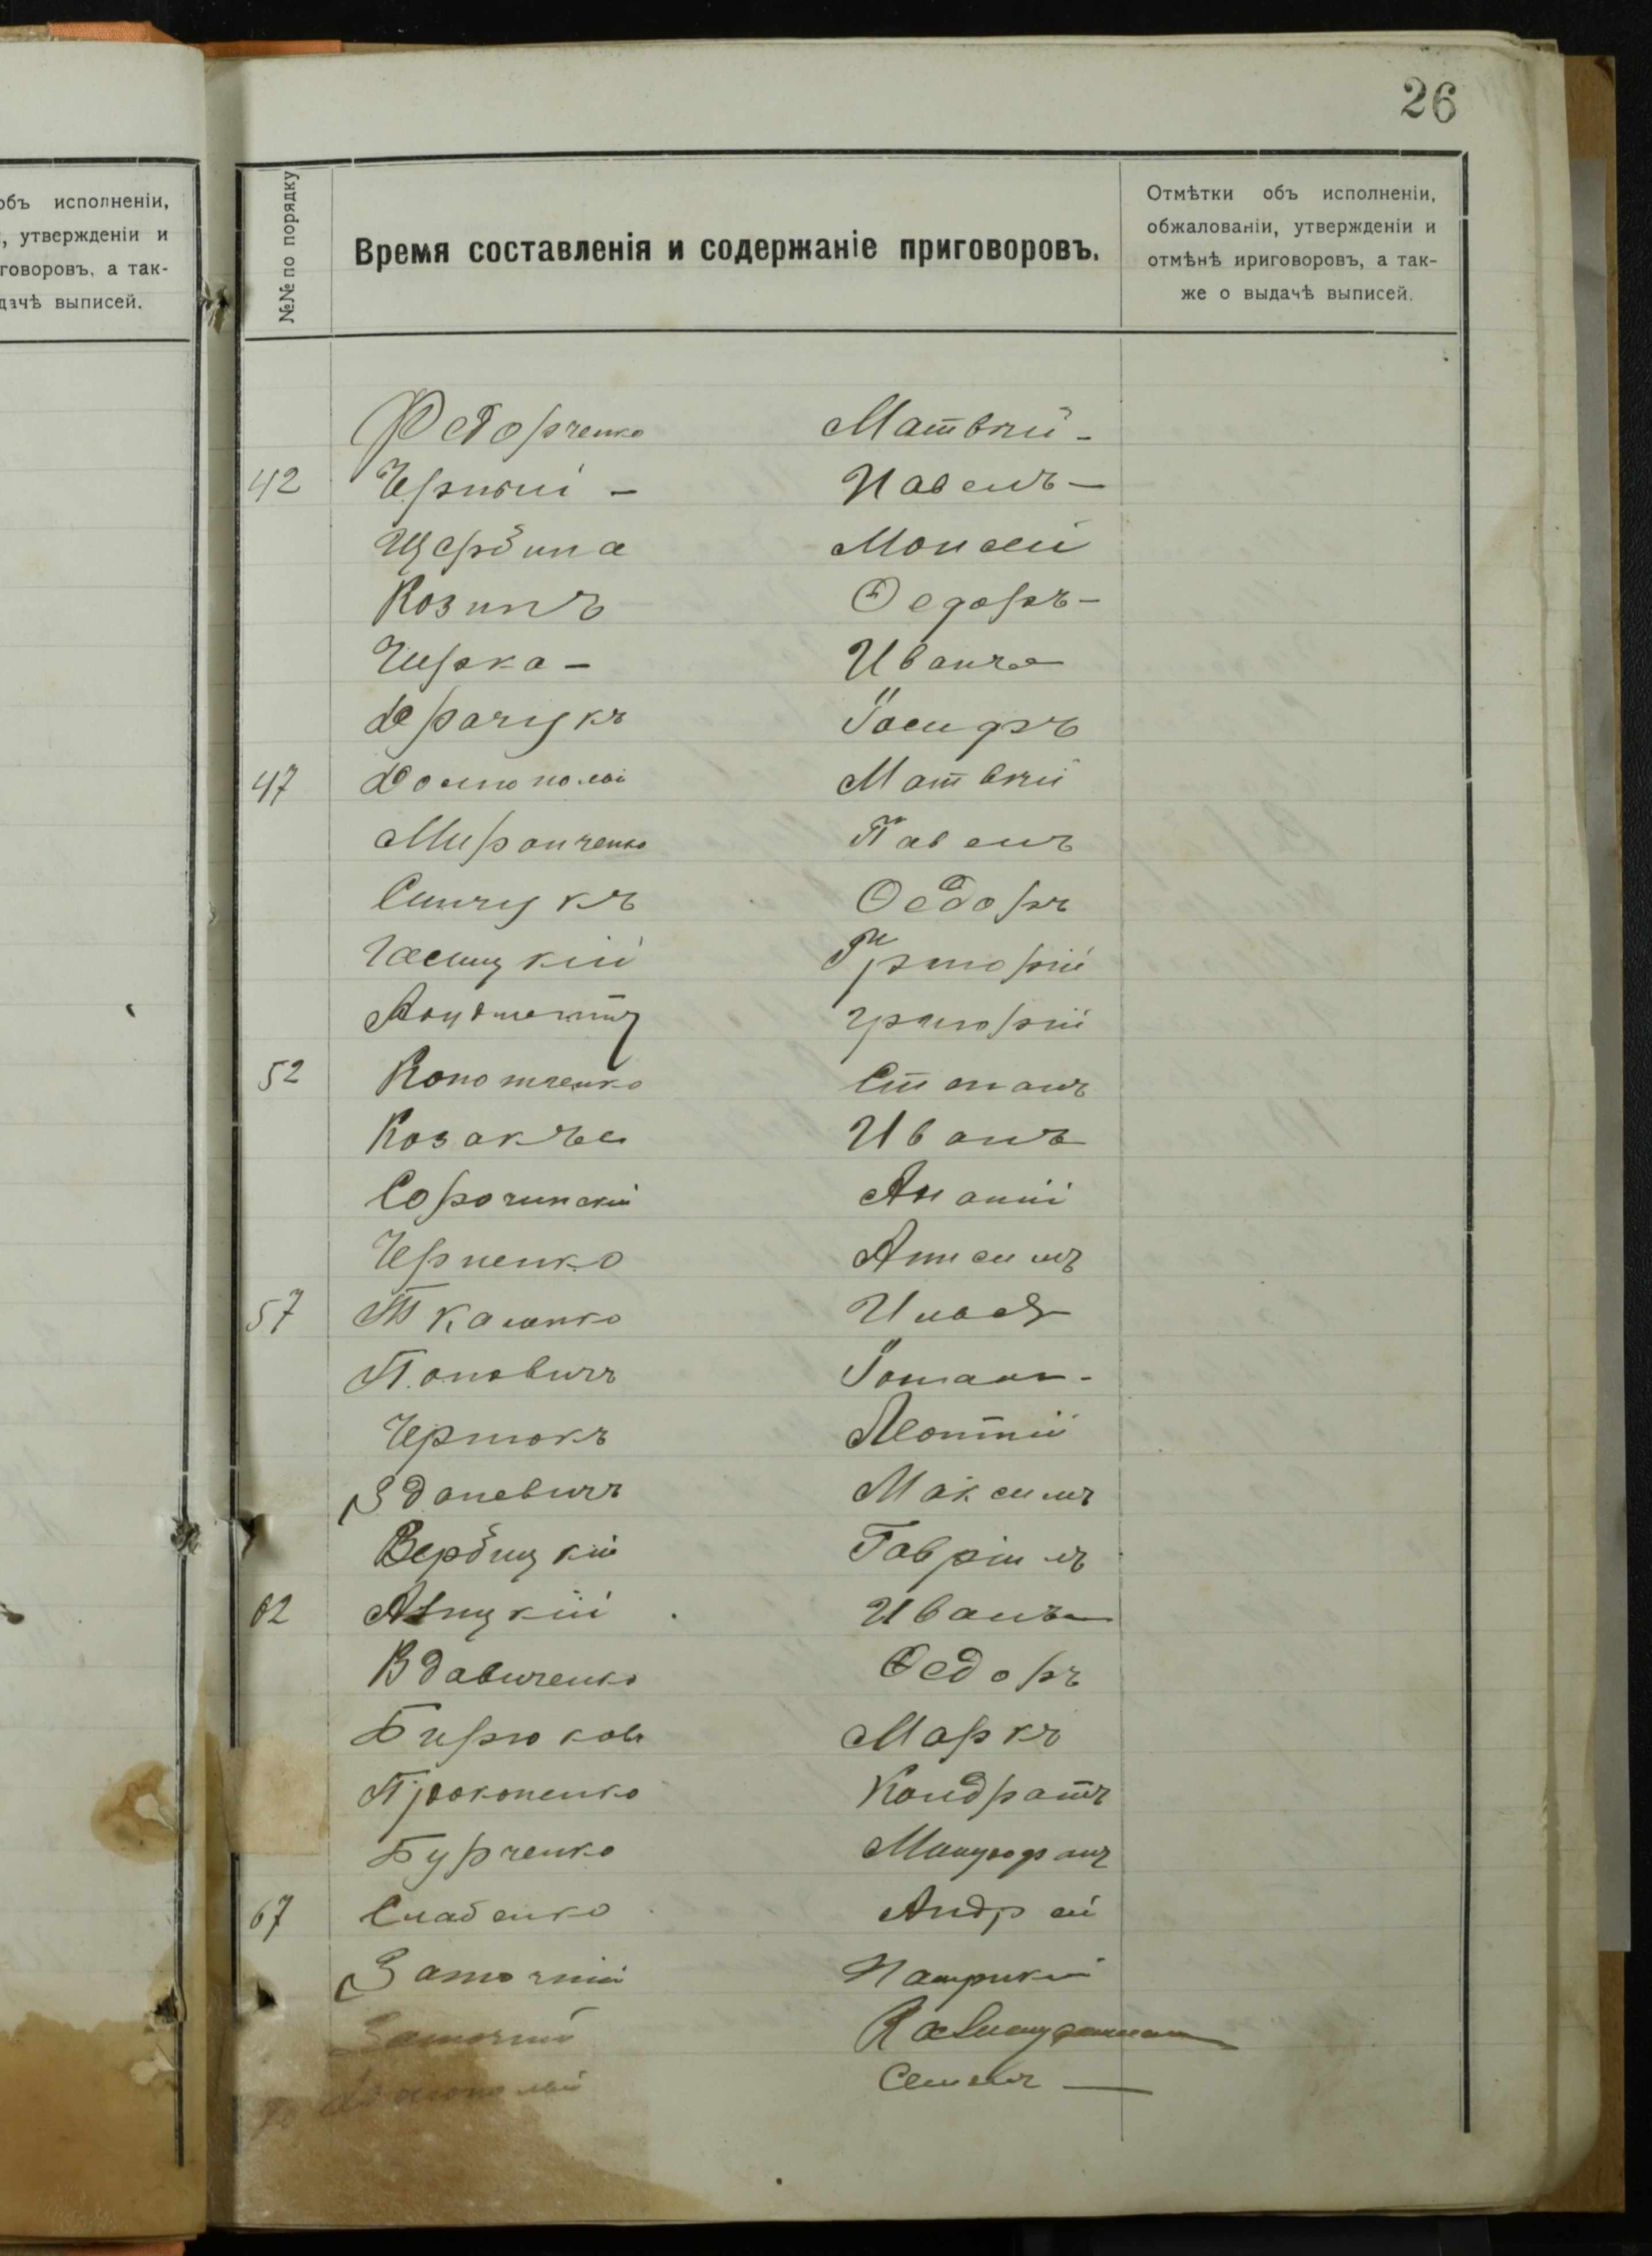 26
объ исполненіи,
, утвержденіи и
говоровъ, а так-
дачѣ выписей.
№№ по порядку
Время составленія и содержаніе приговоровъ.
Отмѣтки объ исполненіи,
обжалованіи, утвержденіи и
отмѣнѣ ириговоровъ, а так-
же о выдачѣ выписей.
Федорченко Матвѣй -
42 Черный - Павелъ -
Щербина Моисей
Козинъ Ѳедоръ -
Чирка - Иванъ
Драчукъ Іосифъ
47 Долгополый Матвѣй
Миронченко Павелъ
Синчукъ Ѳедоръ
Галицкій Григорій
Григорій
52 Конотченко Степанъ
Козакъ Иванъ
Сорочинскій Ананій
Черненко Анисимъ
57 Ткаченко Илья
Поповичъ Романъ -
Чернюкъ Леонтій
Здановичъ Максимъ
Вербицкій Гавріилъ
62 Иванъ
Вдавиченко Ѳедоръ
Бирюковъ Маркъ
Прокопенко Кондратъ
Бурченко Митрофанъ
67 Слабенко Андрей
Заточній Патрикій
Заточній
70 Долгополый Семенъ —